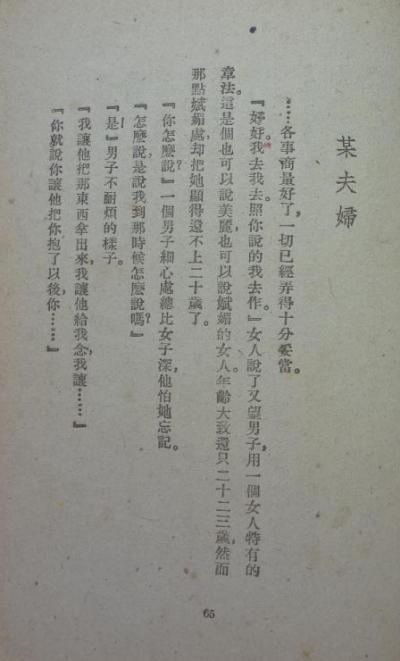 某夫婦
……各事商量好了，一切已經弄得十分妥當。
『好，好，我去我去。照你說的我去作。』女人說了又望男子，用一個女人特有的
章法。這是個也可以說美麗也可以說嫵媚的女人。年齡大致還只二十二三歲，然而
那點嫵媚處却把她顯得還不上二十歲了。
『你怎麼說？』一個男子細心處總比女子深，他怕她忘記。
『怎麼說，是說我到那時候怎麼說嗎？』
『是，』男子不耐煩的樣子。
『我讓他把那東西拿出來，我讓他給我念，我讓……』
『你就說你讓他把你抱了以後你……』
65